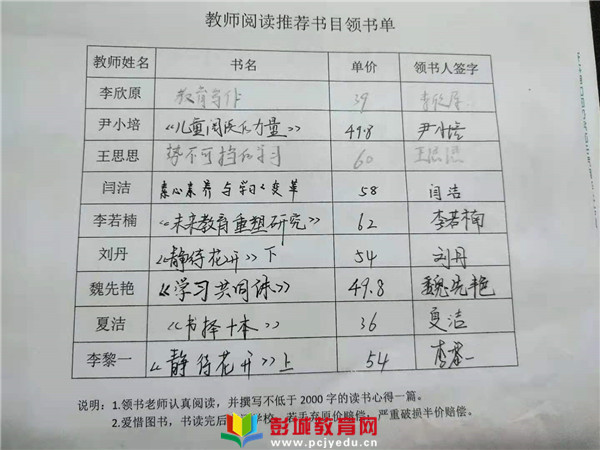 教师阅读推荐书目领书单
教师姓名 书名 单价 领书人签字
李欣原 教育写作 39 李欣原
尹小培 《儿童阅读的力量》 49.8 尹小培
王思思 势不可挡的学习 60 王思思
闫洁 核心素养与学习的变革 58 闫洁
李若楠 《未来教育重塑研究》 62 李若楠
刘丹 《静待花开》下 54 刘丹
魏先艳 《学习共同体》 49.8 魏先艳
夏洁 《书择十本》 36 夏洁
李黎一 《静待花开》上 54 李黎一
说明：1.领书老师认真阅读，并撰写不低于2000字的读书心得一篇。
2.爱惜图书，书读完后 学校，若丢弃原价赔偿；严重破损半价赔偿。
彭城教育网
www.pcjyedu.cn